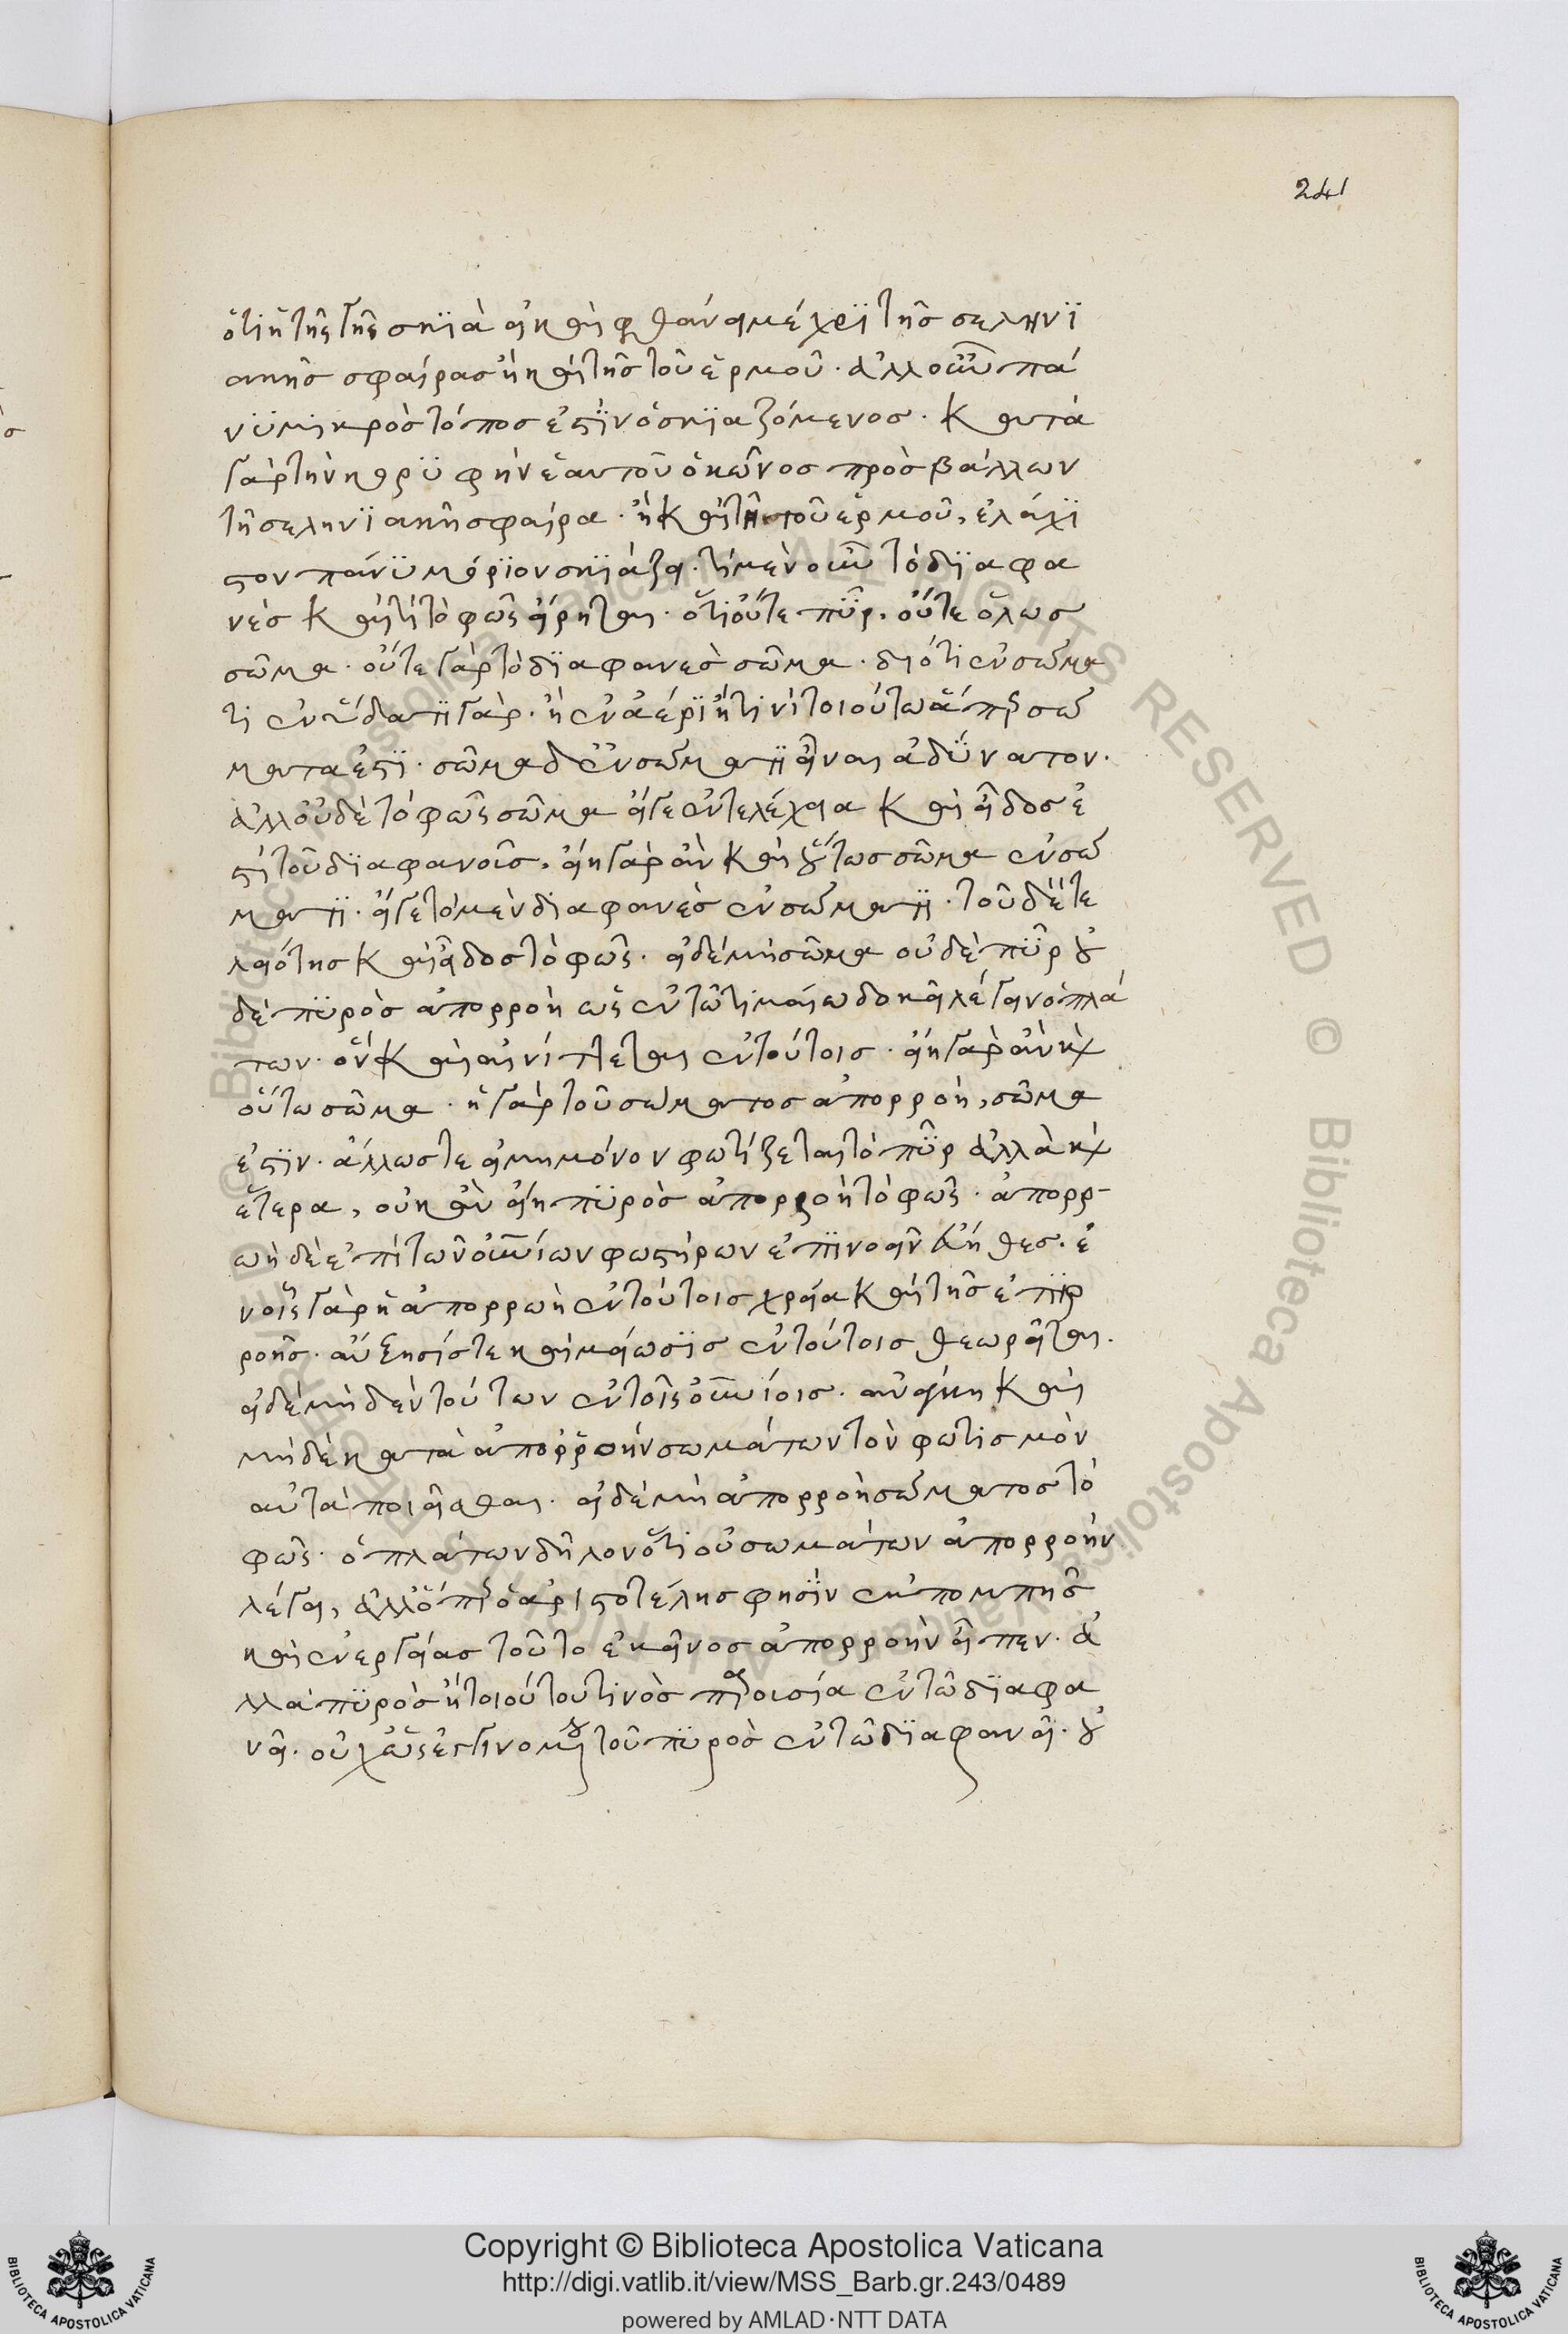 241
ὅτι ἡ τῆς γῆς σκϊὰ εἰ καὶ φθάνει μέχρϊ τῆς σεληνϊ
ακῆς σφαίρας ἢ καὶ τῆς τοῦ ἑρμοῦ. ἀλλ οὖν πά
νϋ μικρὸς τόπος ἐστϊν ὁ σκϊαζόμενος. κατὰ
γὰρ τὴν κορϋφὴν ἑαυτοῦ ὁ κῶνος προσβάλλων
τῇ σεληνϊακῇ σφαίρα. ἢ καὶ τῇ τοῦ ἑρμοῦ, ἐλάχϊ
στον πάνϋ μόρϊον σκϊάζει. τί μὲν οὖν τὸ δϊαφα
νὲς καὶ τί τὸ φῶς εἴρηται. ὅτι οὔτε πῦρ. οὔτε ὅλως
σῶμα. οὔτε γὰρ τὸ δϊαφανὲς σῶμα. διότι ἐν σώμα
τι ἐν ὕδατϊ γὰρ. ἢ ἐν ἀέρϊ ἤ τινι τοιούτω ἅπερ σώ
ματα ἐστϊ. σῶμα δ ἐν σώματϊ εἶναι ἀδϋνατον.
ἀλλ οὐδὲ τὸ φῶς σῶμα εἴγε ἐντελέχεια καὶ εἶδος ἐ
στὶ τοῦ δϊαφανοῦς. εἴη γὰρ ἂν καὶ οὕτως σῶμα ἐν σώ
ματϊ. εἴγε τὸ μὲν διαφανὲς ἐν σώματϊ. τοῦ δὲ τε
λειότης καὶ εἶδος τὸ φῶς. εἰ δὲ μὴ σῶμα οὐδὲ πῦρ οὐ
δὲ πϋρὸς ἀπορροὴ ὡς ἐν τῶ τιμαίω δοκεῖ λέγειν ὁ πλά
των. ὃν καὶ αἰνίττεται ἐν τούτοις. εἴη γὰρ ἂν καὶ
οὕτω σῶμα. ἡ γὰρ τοῦ σώματος ἀπορροὴ, σῶμα
ἐστϊν. ἄλλως τε εἰ μὴ μόνον φωτίζεται τὸ πῦρ ἀλλὰ καὶ
ἕτερα, οὐκ ἂν εἴη πϋρὸς ἀπορροὴ τὸ φῶς. ἀπορρ-
ωὴ δὲ ἐπὶ τῶν οὐνίων φωστήρων ἐπϊνοεῖν εὔηθες. ἐ
νοῖς γὰρ ἡ ἀπορρωὴ ἐν τούτοις χρεία καὶ τῆς ἐπϊρ
ροῆς. αὔξησίς τε καὶ μείωσϊς ἐν τούτοις θεωρεῖται.
εἰ δὲ μὴδὲν τούτων ἐν τοῖς οὐνίοις. ἀνάγκη καὶ
μὴδὲ κατὰ ἀπορροὴν σωμάτων τὸν φωτισμὸν
αὐτὰ ποιεῖσθαι. εἰ δὲ μὴ ἀπορροὴ σώματος τὸ
φῶς. ὁ πλάτων δῆλον ὅτι οὐ σωμάτων ἀπορροὴν
λέγει, ἀλλ ὅπερ ὁ ἀριστοτέλης φησὶν ἐκπομπῆς
καὶ ἐνεργείας τοῦτο ἐκεῖνος ἀπορροὴν εἶπεν. ἀ
λλὰ πϋρὸς ἢ τοιούτου τινὸς παρουσία ἐν τῶ δϊαφα
νεῖ. οὐχ ὡς ἐγγινομένου τοῦ πϋρὸς ἐν τῶ δϊαφανεῖ. οὐ
Copyright © Biblioteca Apostolica Vaticana
http://digi.vatlib.it/view/MSS_Barb.gr.243/0489
powered by AMLAD·NTT DATA